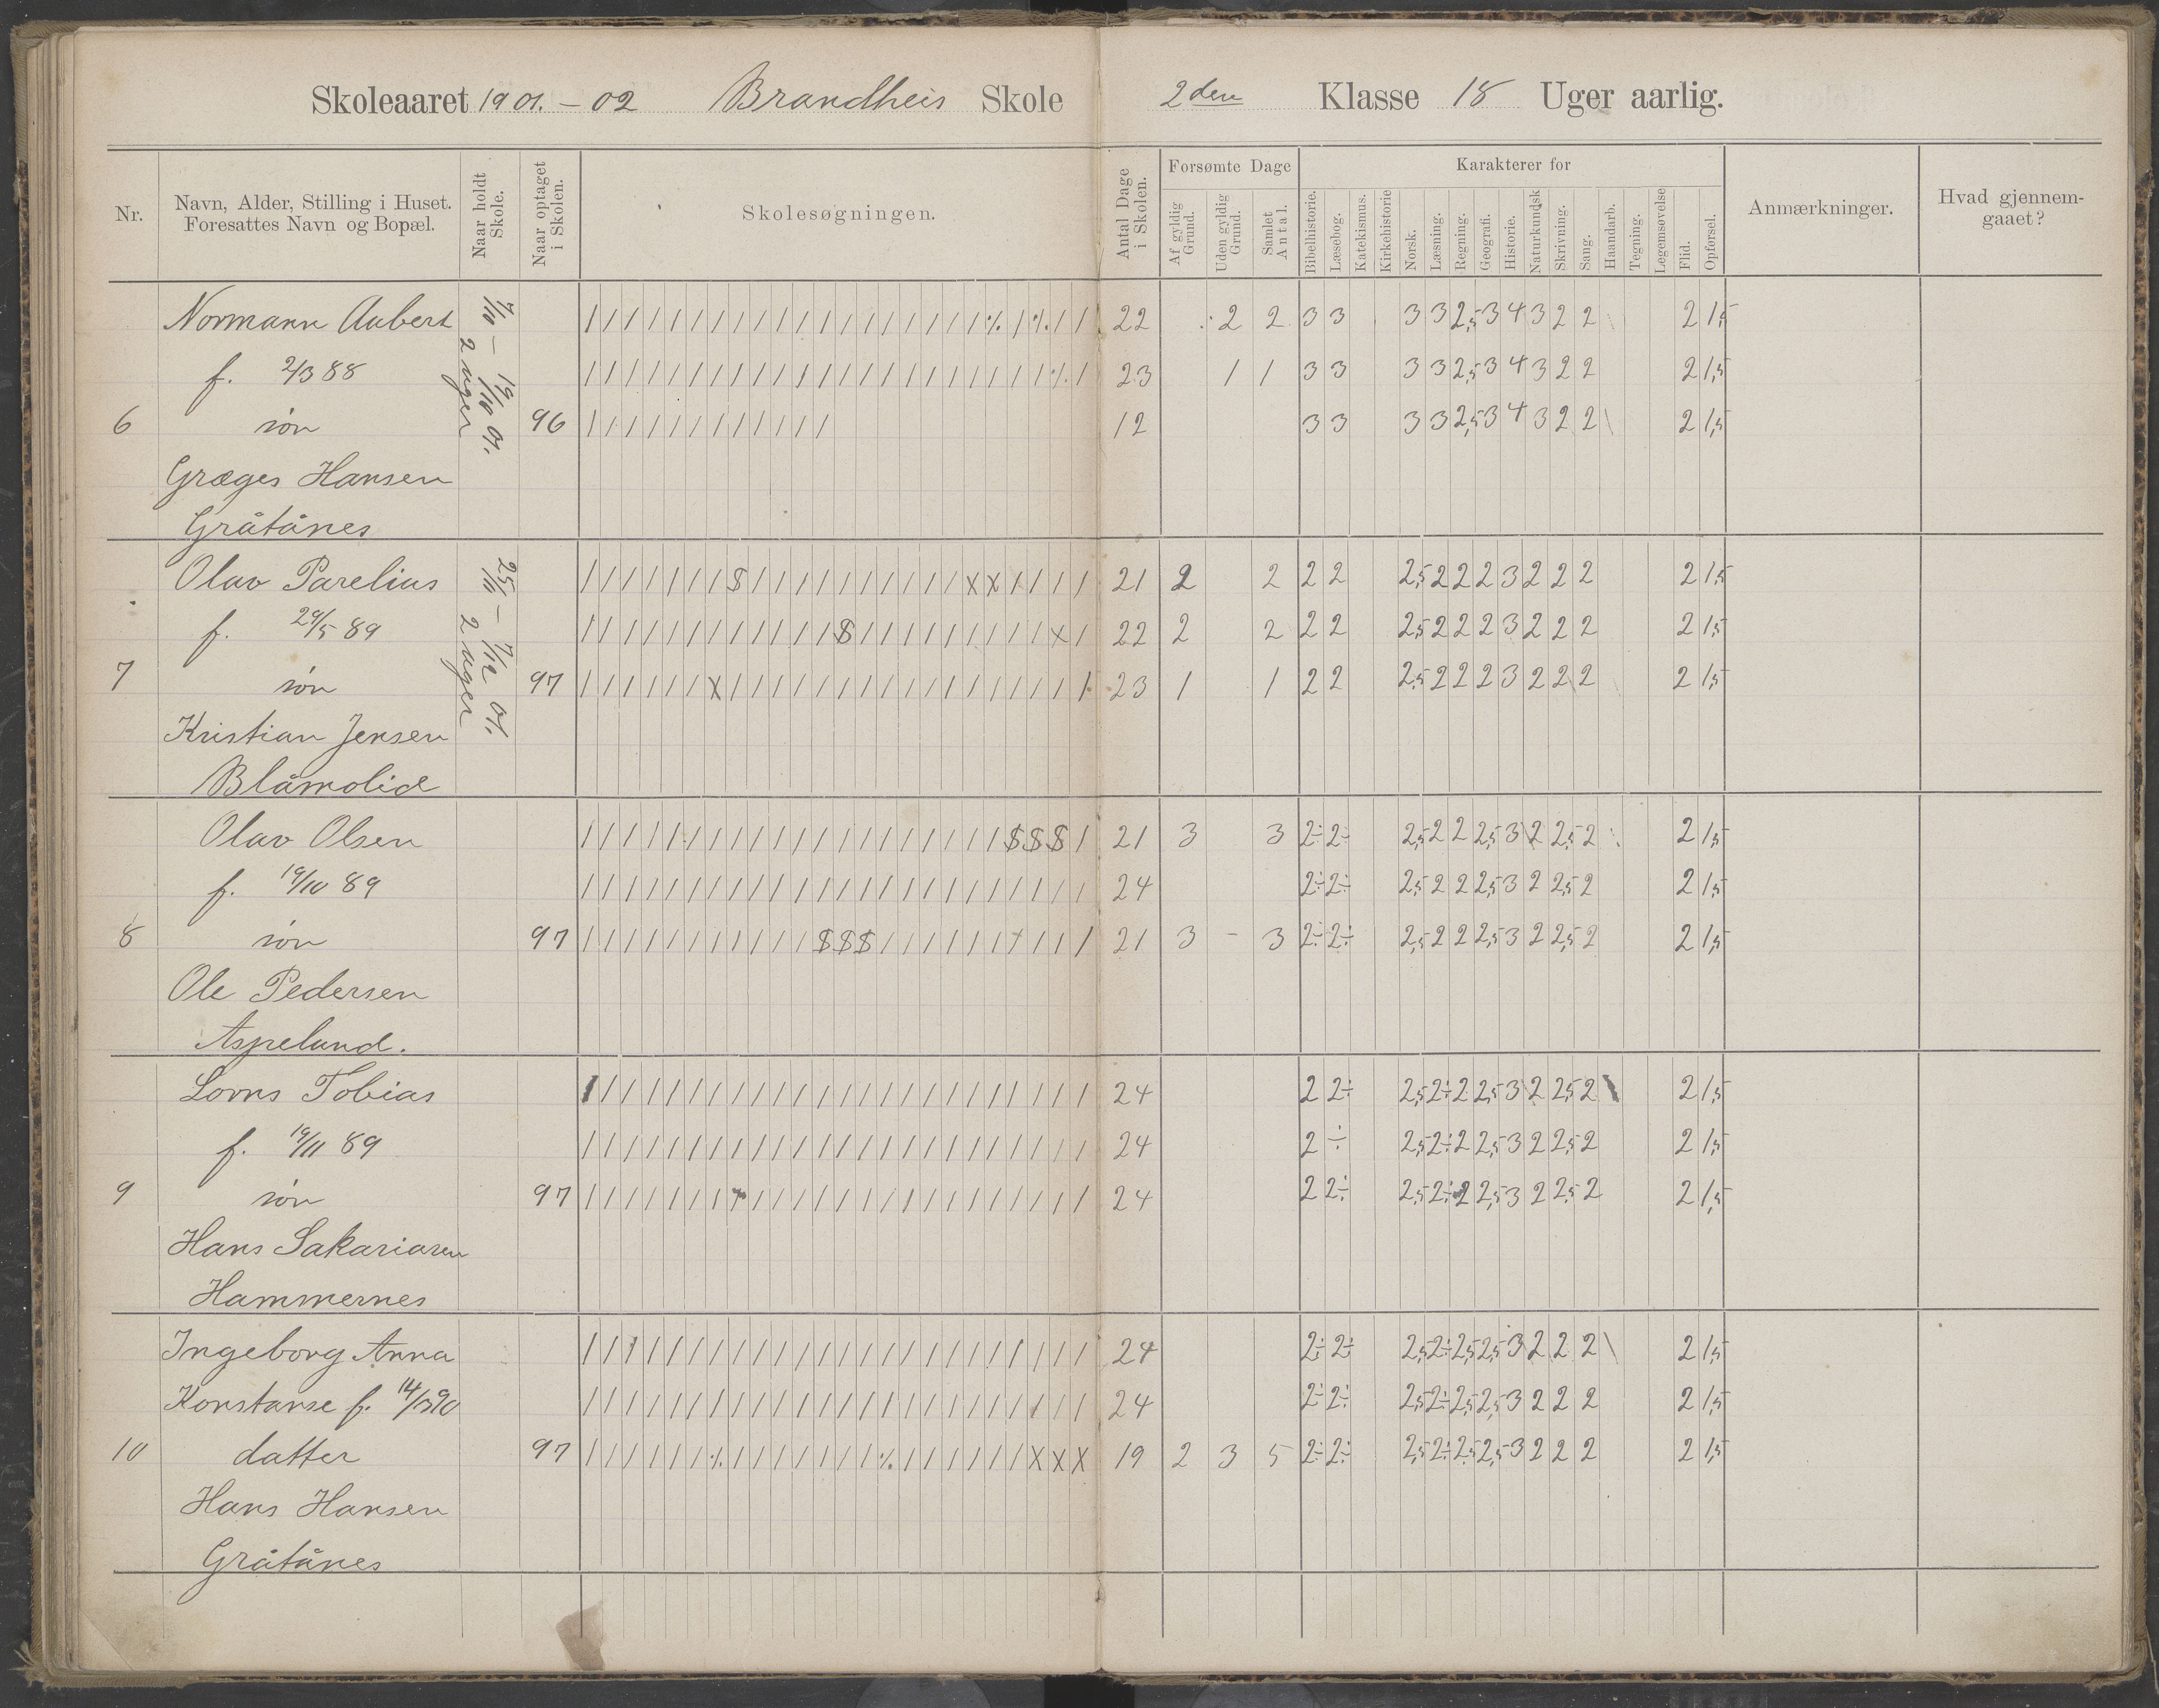 Skoleaaret 1901. - 02 Brandheis Skole 2den Klasse 18 Uger aarlig.
Nr.
Navn, Alder, Stilling i Huset.
Foresattes Navn og Bopæl.
Naar holdt Skole.
Naar optaget i Skolen.
Skolesøgningen.
Antal Dage i Skolen.
Forsømte Dage
Af gyldig Grund.
Uden gyldig Grund.
Samlet Antal.
Karakterer for
Bibelhistorie.
Læsebog.
Katekismus.
Kirkehistorie
Norsk.
Læsning.
Regning.
Geografi.
Historie.
Naturkundsk
Skrivning.
Sang.
Haandarb.
Tegning.
Legemsøvelse
Flid.
Opførsel.
Anmærkninger.
Hvad gjennemgaaet?
7/10 - 19/10 01.
2 uger
Normann Aubert 22 2 2 3 3 3 3 2,5 3 4 3 2 2 2 1,5
f. 2/3 88 23 1 1 3 3 3 3 2,5 3 4 3 2 2 2 1,5
6 søn 96 12 3 3 3 3 2,5 3 4 3 2 2 2 1,5
Græges Hansen
Gråtånes
25/11 - 7/12 01.
2 uger
Olav Parelius 21 2 2 2 2 2,5 2 2 2 3 2 2 2 2 1,5
f. 29/5 89 22 2 2 2 2 2,5 2 2 2 3 2 2 2 2 1,5
7 søn 97 23 1 1 2 2 2,5 2 2 2 3 2 2 2 2 1,5
Kristian Jensen
Blåmolid
Olav Olsen 21 3 3 2÷ 2÷ 2,5 2 2 2,5 3 2 2,5 2 2 1,5
f. 19/10 89 24 2÷ 2÷ 2,5 2 2 2,5 3 2 2,5 2 2 1,5
8 søn 97 21 3 - 3 2÷ 2÷ 2,5 2 2 2,5 3 2 2,5 2 2 1,5
Ole Pedersen
Aspelund.
Lorns Tobias 24 2 2÷ 2,5 2÷ 2 2,5 3 2 2,5 2 2 1,5
f. 19/11 89 24 2 ÷ 2,5 2÷ 2 2,5 3 2 2,5 2 2 1,5
9 søn 97 24 2 2÷ 2,5 2÷ 2 2,5 3 2 2,5 2 2 1,5
Hans Sakariasen
Hammernes
Ingeborg Anna 24 2÷ 2÷ 2,5 2÷ 2,5 2,5 3 2 2 2 2 1,5
Konstanse f. 14/3 90 24 2÷ 2÷ 2,5 2÷ 2,5 2,5 3 2 2 2 2 1,5
10 datter 97 19 2 3 5 2÷ 2÷ 2,5 2÷ 2,5 2,5 3 2 2 2 2 1,5
Hans Hansen
Gråtånes